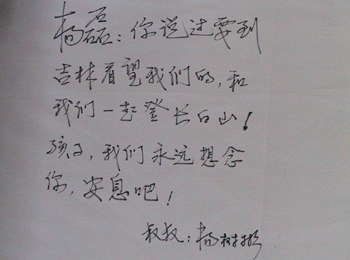 杨磊：你说过要到
吉林看望我们的，和
我们一起登长白山！
孩子，我们永远想念
你，安息吧！
叔叔：杨树彬